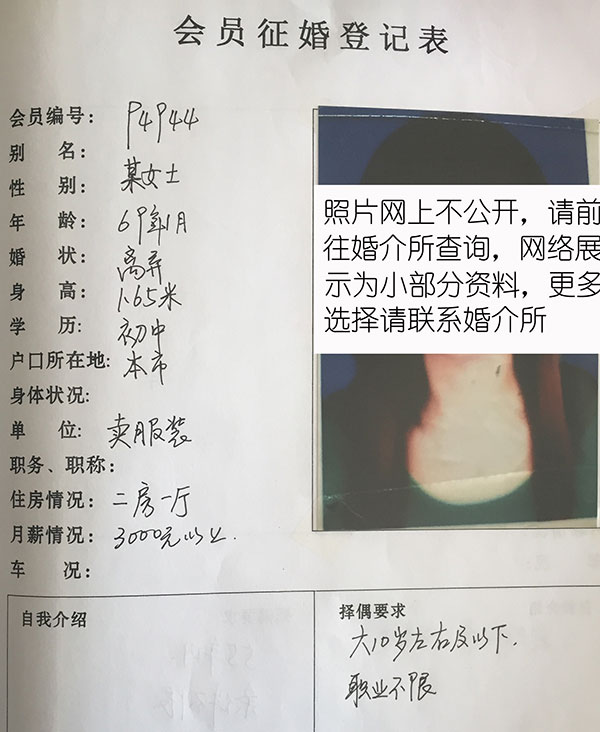 会员征婚登记表
会员编号：P4944
别 名：
性 别：某女士
年 龄：69年1月
婚 状：离弃
身 高：1.65米
学 历：初中
户口所在地：本市
身体状况：
单 位：卖服装
职务、职称：
住房情况：二房一厅
月薪情况：3000元以上.
车 况：
照片网上不公开，请前
往婚介所查询，网络展
示为小部分资料，更多
选择请联系婚介所
自我介绍
择偶要求
大10岁左右及以下.
职业不限